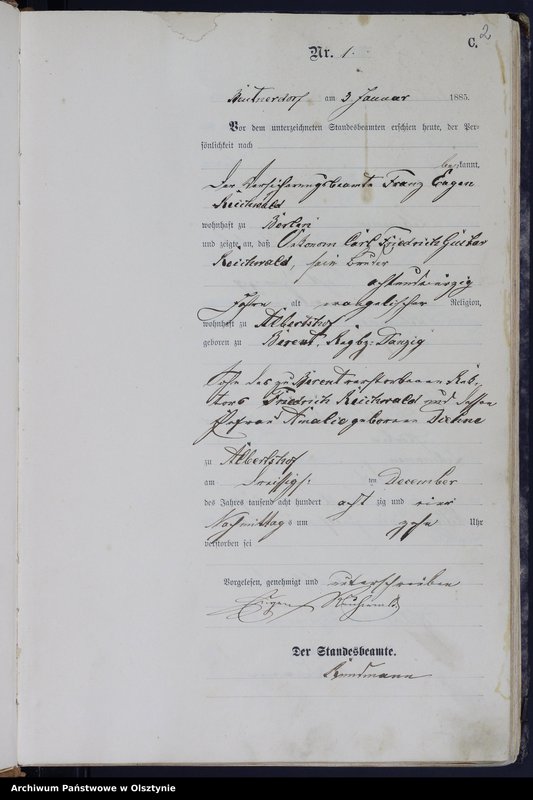 2
C.
Nr. 1.
am 3 Januar 1885.
Vor dem unterzeichneten Standesbeamten erschien heute, der Per-
sönlichkeit nach
bekannt,
Der Versicherungsbeamte Franz Eugen
Reichwald
wohnhaft zu Berlin
und zeigte an, daß Oekonom Carl Friedrich Gustav
Reichwald, sein Bruder
achtundvierzig
Jahre alt evangelischer Religion,
wohnhaft zu Albertshof
geboren zu Berent, Regbz: Danzig
Sohn des zu Berent verstorbenen Rek-
tors Friedrich Reichwald und dessen
Ehefrau Amalie geborenen
zu Albertshof
am dreissigs ten December
des Jahres tausend acht hundert acht zig und vier
Nachmittag s um zehn Uhr
verstorben sei
Vorgelesen, genehmigt und unterschrieben
Eugen Reichwald
Der Standesbeamte.
Archiwum Państwowe w Olsztynie